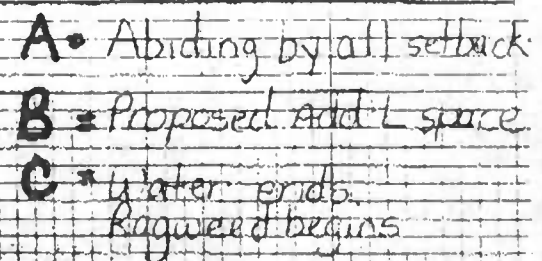 A = Abiding by all setback
B = Proposed Add'L space
C = Water ends.
Ragweed begins